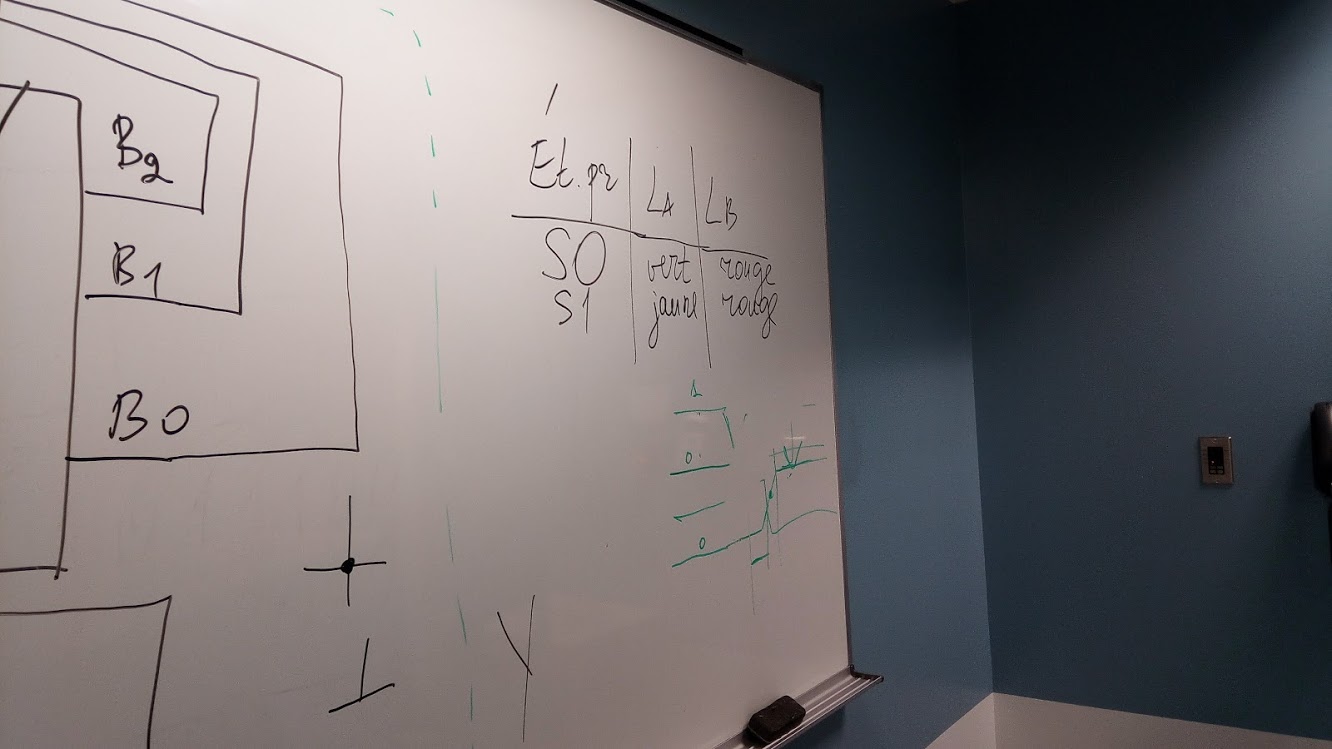 B2
B1
B0
Ét. pr LA LB
S0 vert rouge
S1 jaune rouge
1
0
0
Y